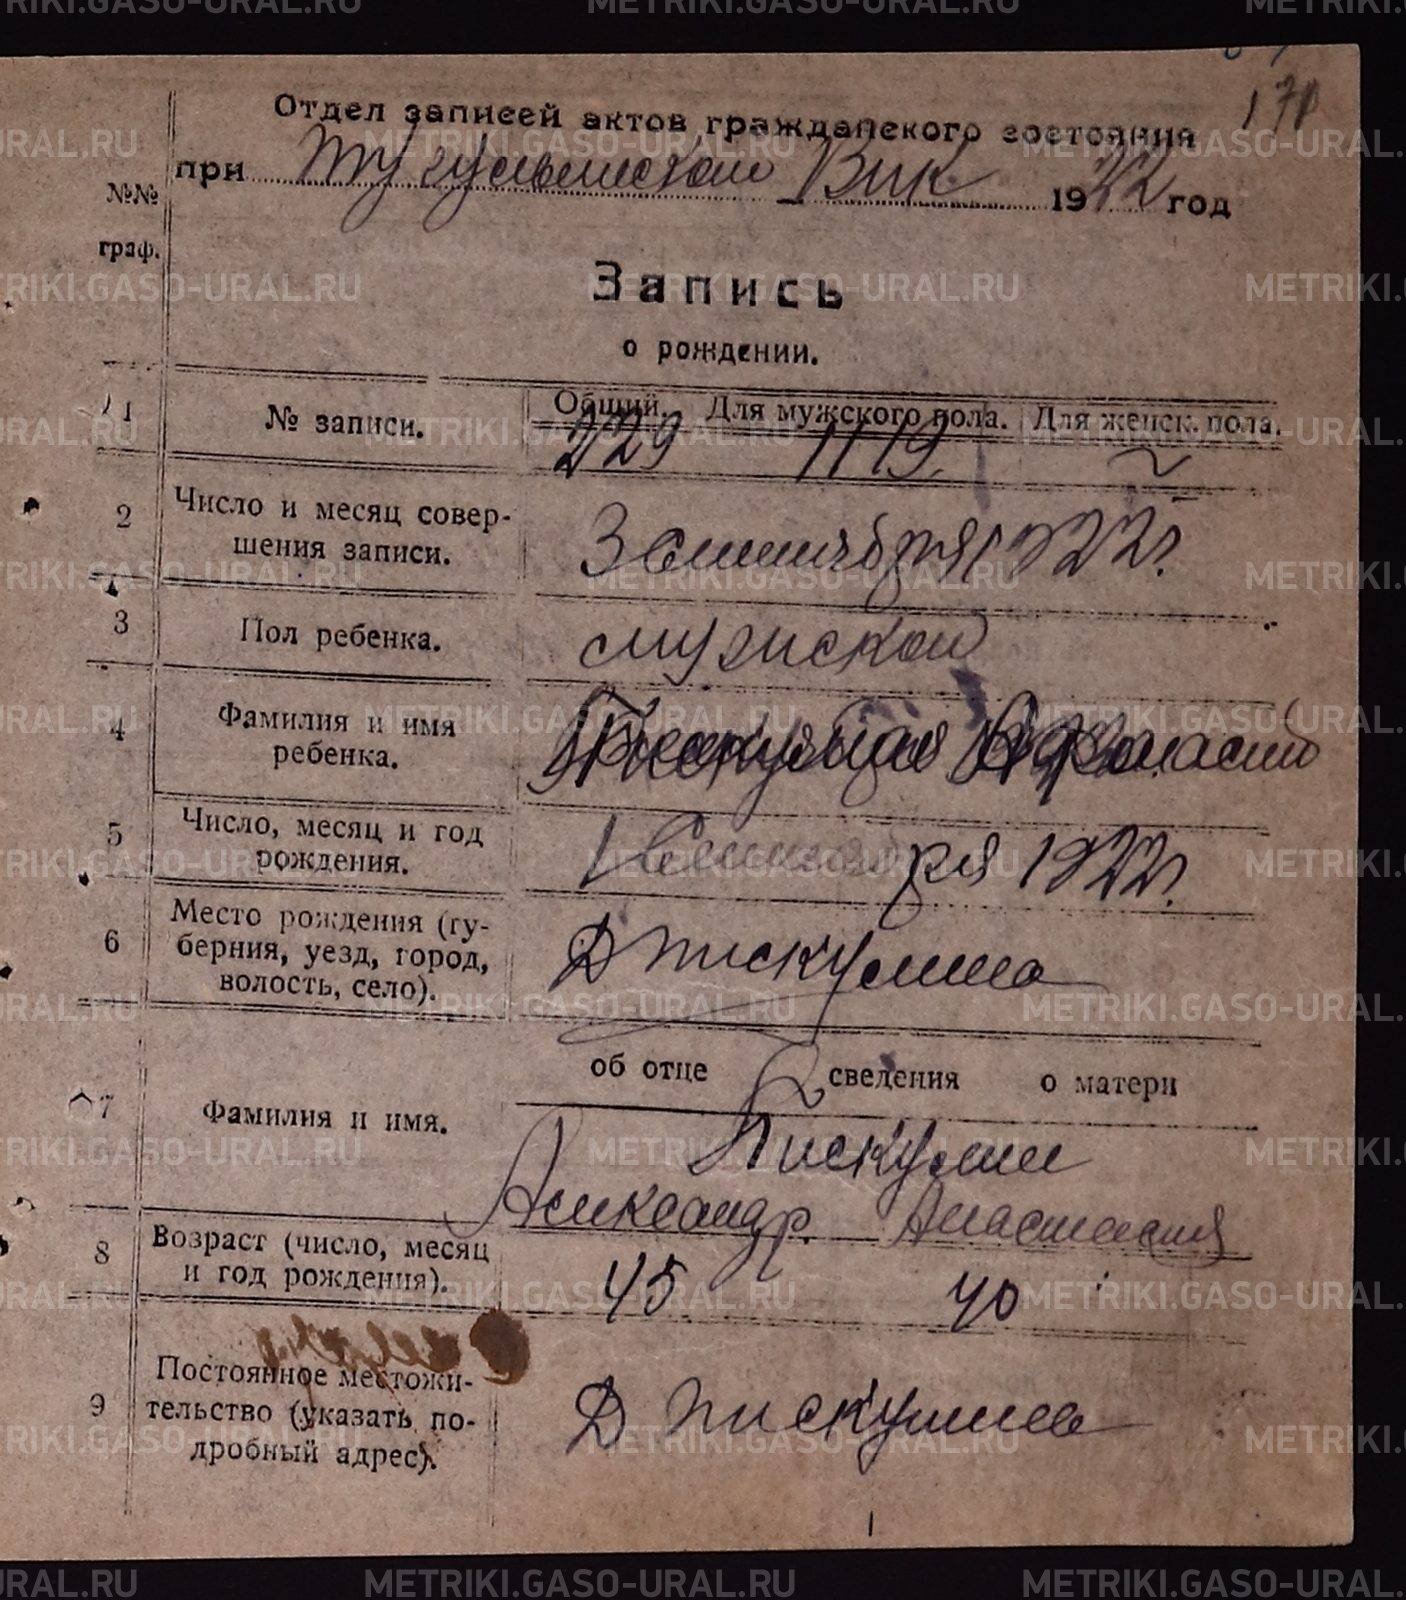 170
Отдел записей актов гражданского состояния
при Тугулымском Вик 1922 год
№№
граф.
Запись
о рождении.
1 № записи. Общий. Для мужского пола. Для женск. пола.
229 119
2 Число и месяц совер-
шения записи. 3 Сентября 1922 г.
3 Пол ребенка. мужской
4 Фамилия и имя
ребенка.
5 Число, месяц и год
рождения. 1 Сентября 1922 г.
6 Место рождения (гу-
берния, уезд, город,
волость, село). Д Пискулина
об отце сведения о матери
7 Фамилия и имя. Пискулин
Александр. Анастасия
8 Возраст (число, месяц
и год рождения). 45 40
9 Постоянное местожи-
тельство (указать по-
дробный адрес). Д Пискулина
METRIKI.GASO-URAL.RU